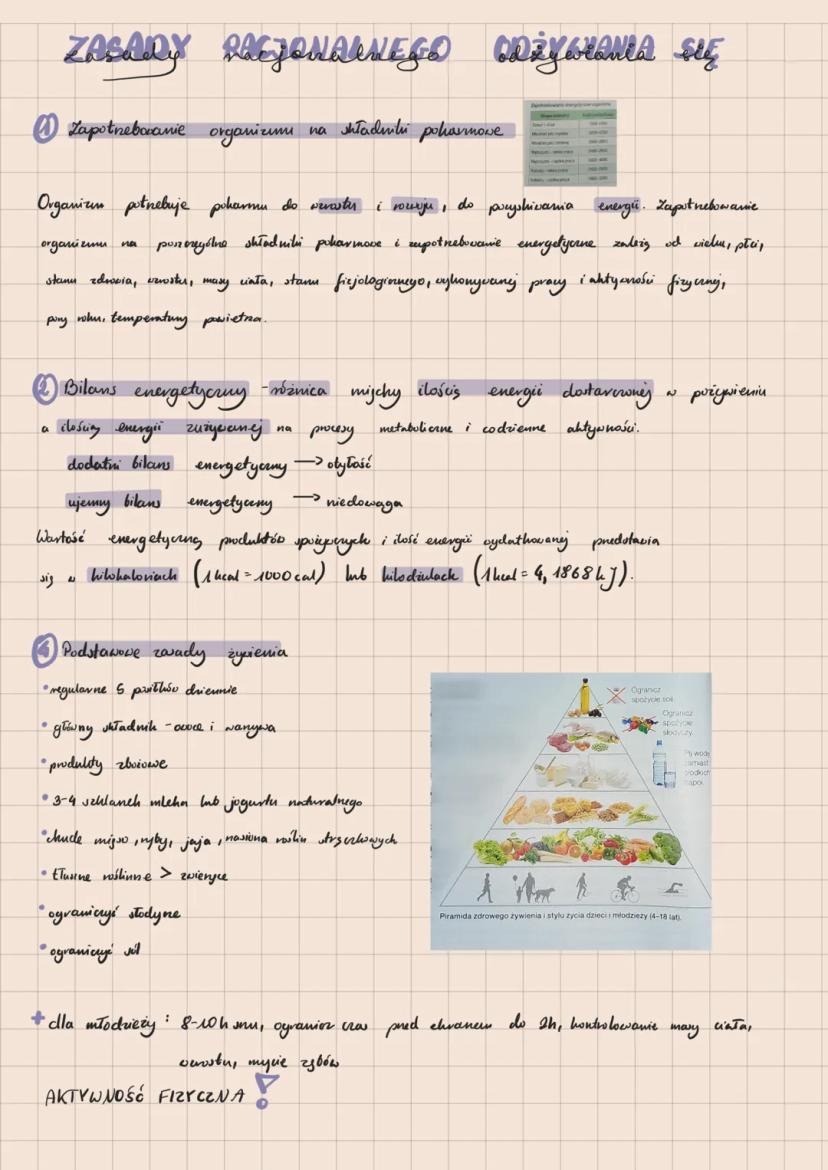 ZASADY RACJONALNEGO ODŻYWIANIA SIĘ
zasady racjonalnego odżywiania się
1 Zapotrzebowanie organizmu na składniki pokarmowe
Organizm potrzebuje pokarmu do wzrostu i rozwoju, do pozyskiwania energii. Zapotrzebowanie
organizmu na poszczególne składniki pokarmowe i zapotrzebowanie energetyczne zależą od wieku, płci,
stanu zdrowia, wzrostu, masy ciała, stanu fizjologicznego, wykonywanej pracy i aktywności fizycznej,
pory roku, temperatury powietrza.
2 Bilans energetyczny - różnica między ilością energii dostarczonej w pożywieniu
a ilością energii zużywanej na procesy metaboliczne i codzienne aktywności.
dodatni bilans energetyczny → otyłość
ujemny bilans energetyczny → niedowaga
Wartość energetyczną produktów spożywczych i ilość energii wydatkowanej przedstawia
się w kilokaloriach (1 kcal = 1000 cal) lub kilodżulach (1 kcal = 4,1868 kJ).
4 Podstawowe zasady żywienia
• regularne 5 posiłków dziennie
• główny składnik - owoce i warzywa
• produkty zbożowe
• 3-4 szklanek mleka lub jogurtu naturalnego
• chude mięso, ryby, jaja, nasiona roślin strączkowych
• tłuszcze roślinne > zwierzęce
• ograniczyć słodycze
• ograniczyć sól
Ogranicz
spożycie soli.
Ogranicz
spożycie
słodyczy.
Pij wodę
zamiast
słodkich
napoi.
Piramida zdrowego żywienia i stylu życia dzieci i młodzieży (4–18 lat).
+ dla młodzieży: 8-10h snu, ogranicz czas przed ekranem do 2h, kontrolowanie masy ciała,
wzrostu, mycie zębów
AKTYWNOŚĆ FIZYCZNA !